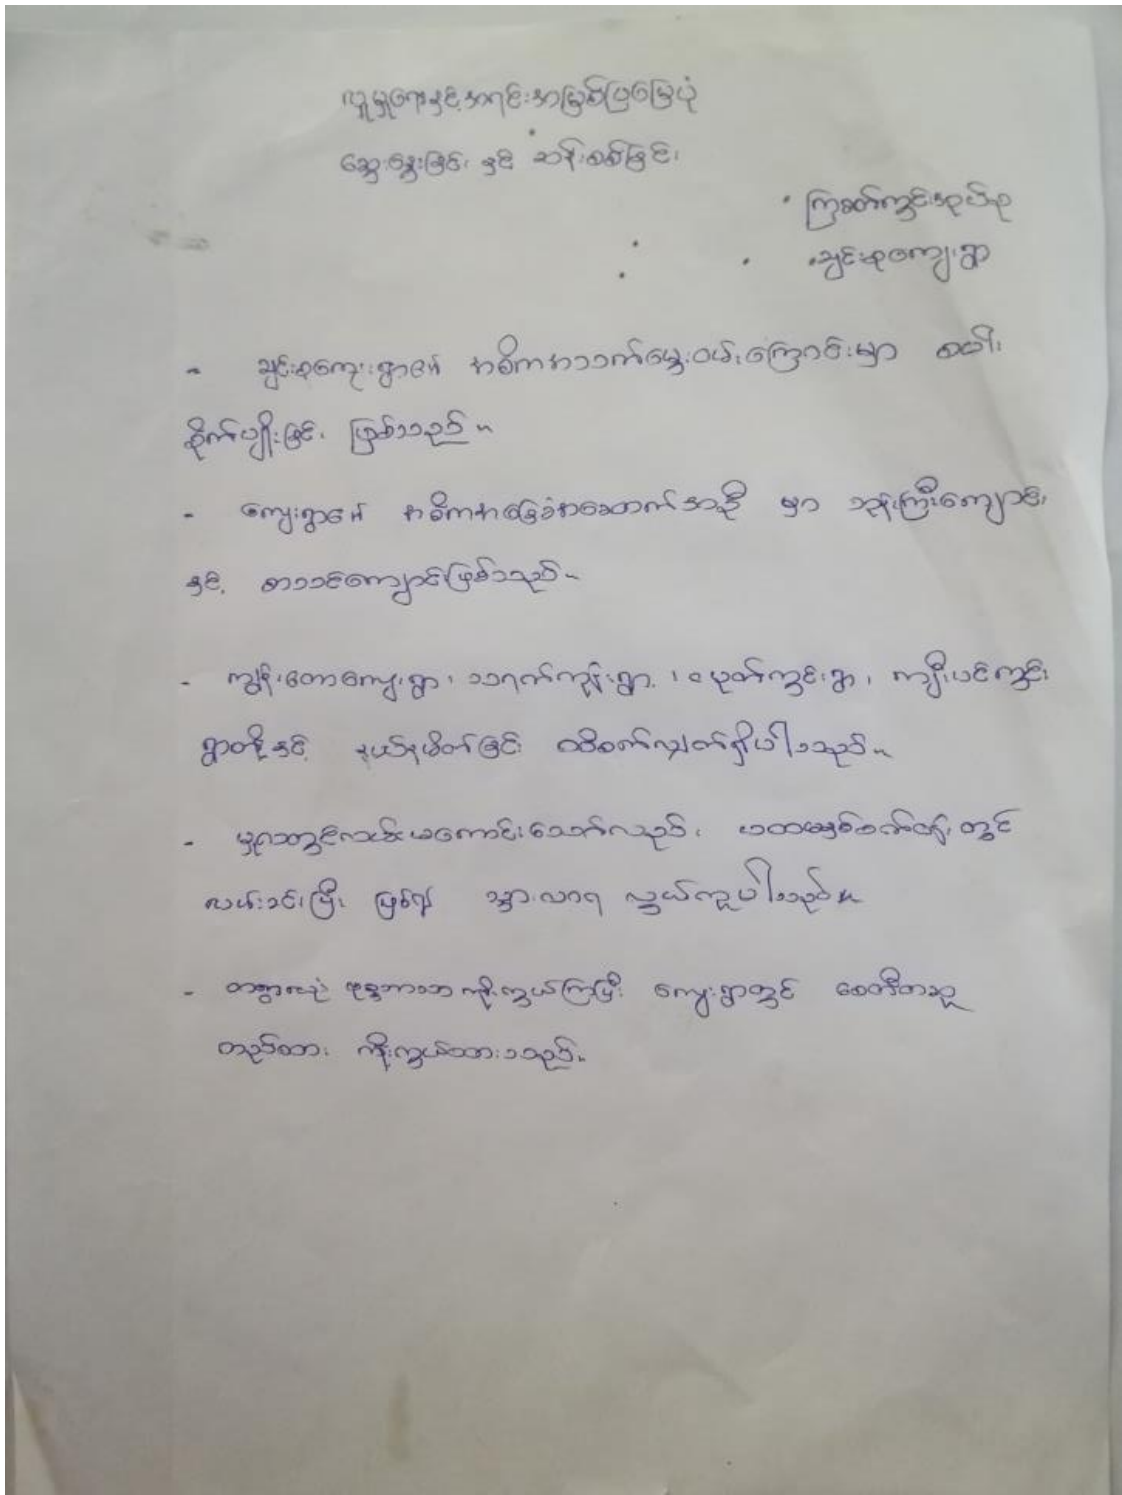 လူမှုရေးနှင့်အရင်းအမြစ်ပြမြေပုံ
ဆွေးနွေးခြင်း နှင့် ဆန်းစစ်ခြင်း
ကြခတ်ကွင်းအုပ်စု
ချင်းစုကျေးရွာ
- ချင်းစုကျေးရွာ၏ အဓိကအသက်မွေးဝမ်းကြောင်းမှာ စပါး
စိုက်ပျိုးခြင်း ဖြစ်သည်။
- ကျေးရွာ၏ အဓိကအခြေခံအဆောက်အဦ မှာ ဘုန်းကြီးကျောင်း
နှင့် စာသင်ကျောင်းဖြစ်သည်။
- ကျွန်းတောကျေးရွာ၊ သရက်ကုန်းရွာ၊ ကွင်းရွာ၊ ကျီးပင်ကွင်း
ရွာတို့နှင့် နယ်နမိတ်ခြင်း ထိစပ်လျက်ရှိပါသည်။
- မူလတွင်လမ်းမကောင်းသော်လည်း၊ ယတစ်နှစ်တွင်
လမ်းခင်းပြီး ဖြစ်၍ သွားလာရ လွယ်ကူပါသည်။
- တစ်ရွာလုံး ဗုဒ္ဓဘာသာ ကိုးကွယ်ကြပြီး ကျေးရွာတွင် စေတီတဆူ
တည်ထား ကိုးကွယ်ထားသည်။